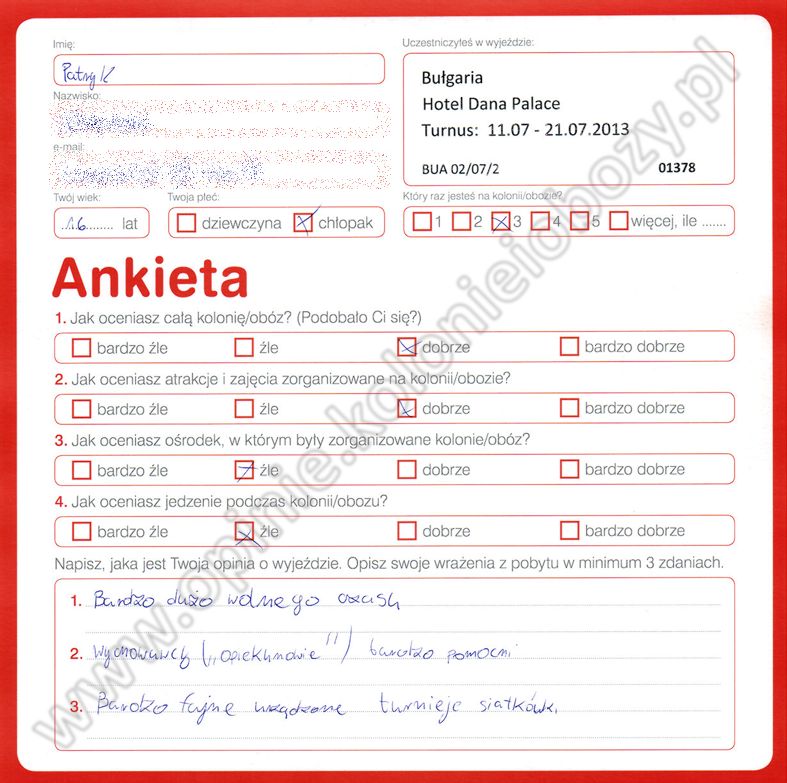 Imię:
Patryk
Nazwisko:
e-mail:
Uczestniczyłeś w wyjeździe:
Bułgaria
Hotel Dana Palace
Turnus: 11.07 - 21.07.2013
BUA 02/07/2 01378
Twój wiek: Twoja płeć: Który raz jesteś na kolonii/obozie?
16 lat dziewczyna chłopak 1 2 3 4 5 więcej, ile .......
Ankieta
1. Jak oceniasz całą kolonię/obóz? (Podobało Ci się?)
bardzo źle źle dobrze bardzo dobrze
2. Jak oceniasz atrakcje i zajęcia zorganizowane na kolonii/obozie?
bardzo źle źle dobrze bardzo dobrze
3. Jak oceniasz ośrodek, w którym były zorganizowane kolonie/obóz?
bardzo źle źle dobrze bardzo dobrze
4. Jak oceniasz jedzenie podczas kolonii/obozu?
bardzo źle źle dobrze bardzo dobrze
Napisz, jaka jest Twoja opinia o wyjeździe. Opisz swoje wrażenia z pobytu w minimum 3 zdaniach.
1. Bardzo dużo wolnego czasu
2. Wychowawcy („opiekunowie") bardzo pomocni
3. Bardzo fajne urządzone turnieje siatkówki.
www.opinie.kolonieiobozy.pl